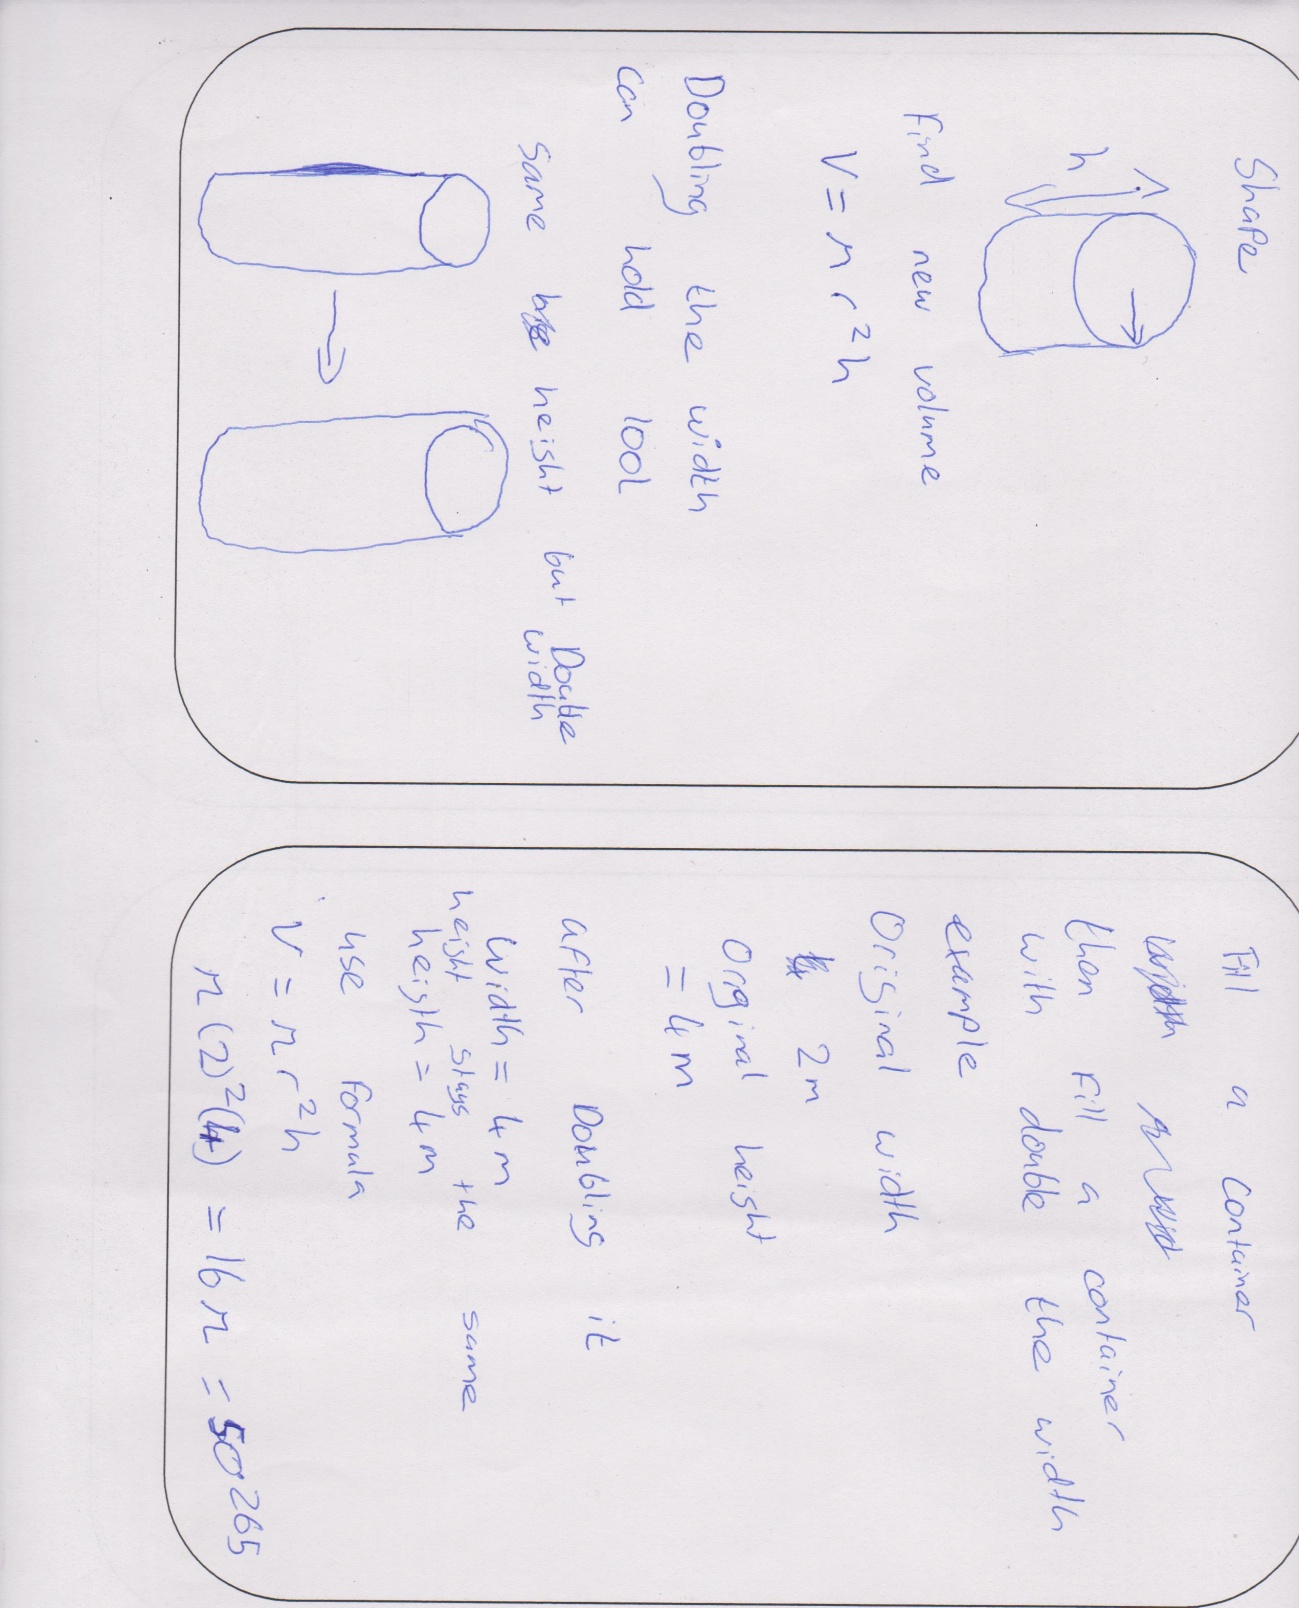 Shape
h
Find new volume
V = π r²h
Doubling the width
can hold 100L
Same height but Double
width
Fill a container
then Fill a container
with double the width
example
Original width
2m
Orginal height
= 4m
after Doubling it
width = 4m
height stays the same
heigth = 4m
use formula
V = π r²h
π(2)²(4) = 16π = 50265